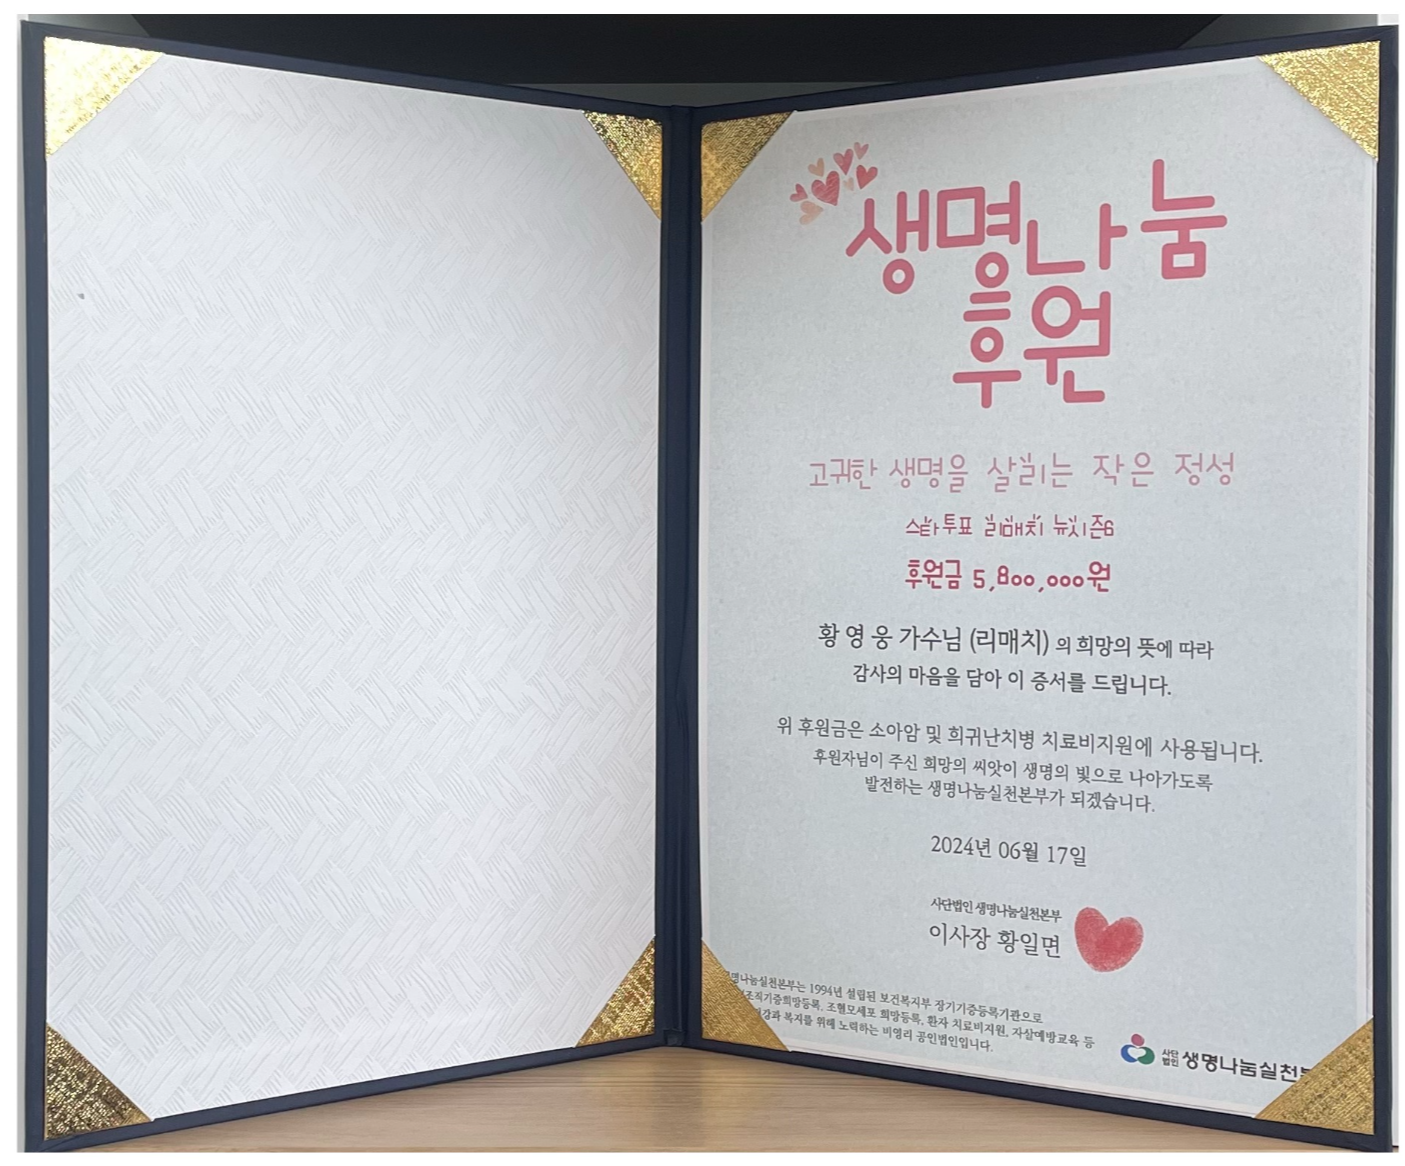 생명나눔
후원
고귀한 생명을 살리는 작은 정성
스타투표 리매치 뉴시즌6
후원금 5,800,000원
황영웅 가수님 (리매치) 의 희망의 뜻에 따라
감사의 마음을 담아 이 증서를 드립니다.
위 후원금은 소아암 및 희귀난치병 치료비지원에 사용됩니다.
후원자님이 주신 희망의 씨앗이 생명의 빛으로 나아가도록
발전하는 생명나눔실천본부가 되겠습니다.
2024년 06월 17일
사단법인 생명나눔실천본부
이사장 황일면
명나눔실천본부는 1994년 설립된 보건복지부 장기기증등록기관으로
조직기증희망등록, 조혈모세포 희망등록, 환자 치료비지원, 자살예방교육 등
강과 복지를 위해 노력하는 비영리 공인법인입니다.
사단
법인 생명나눔실천